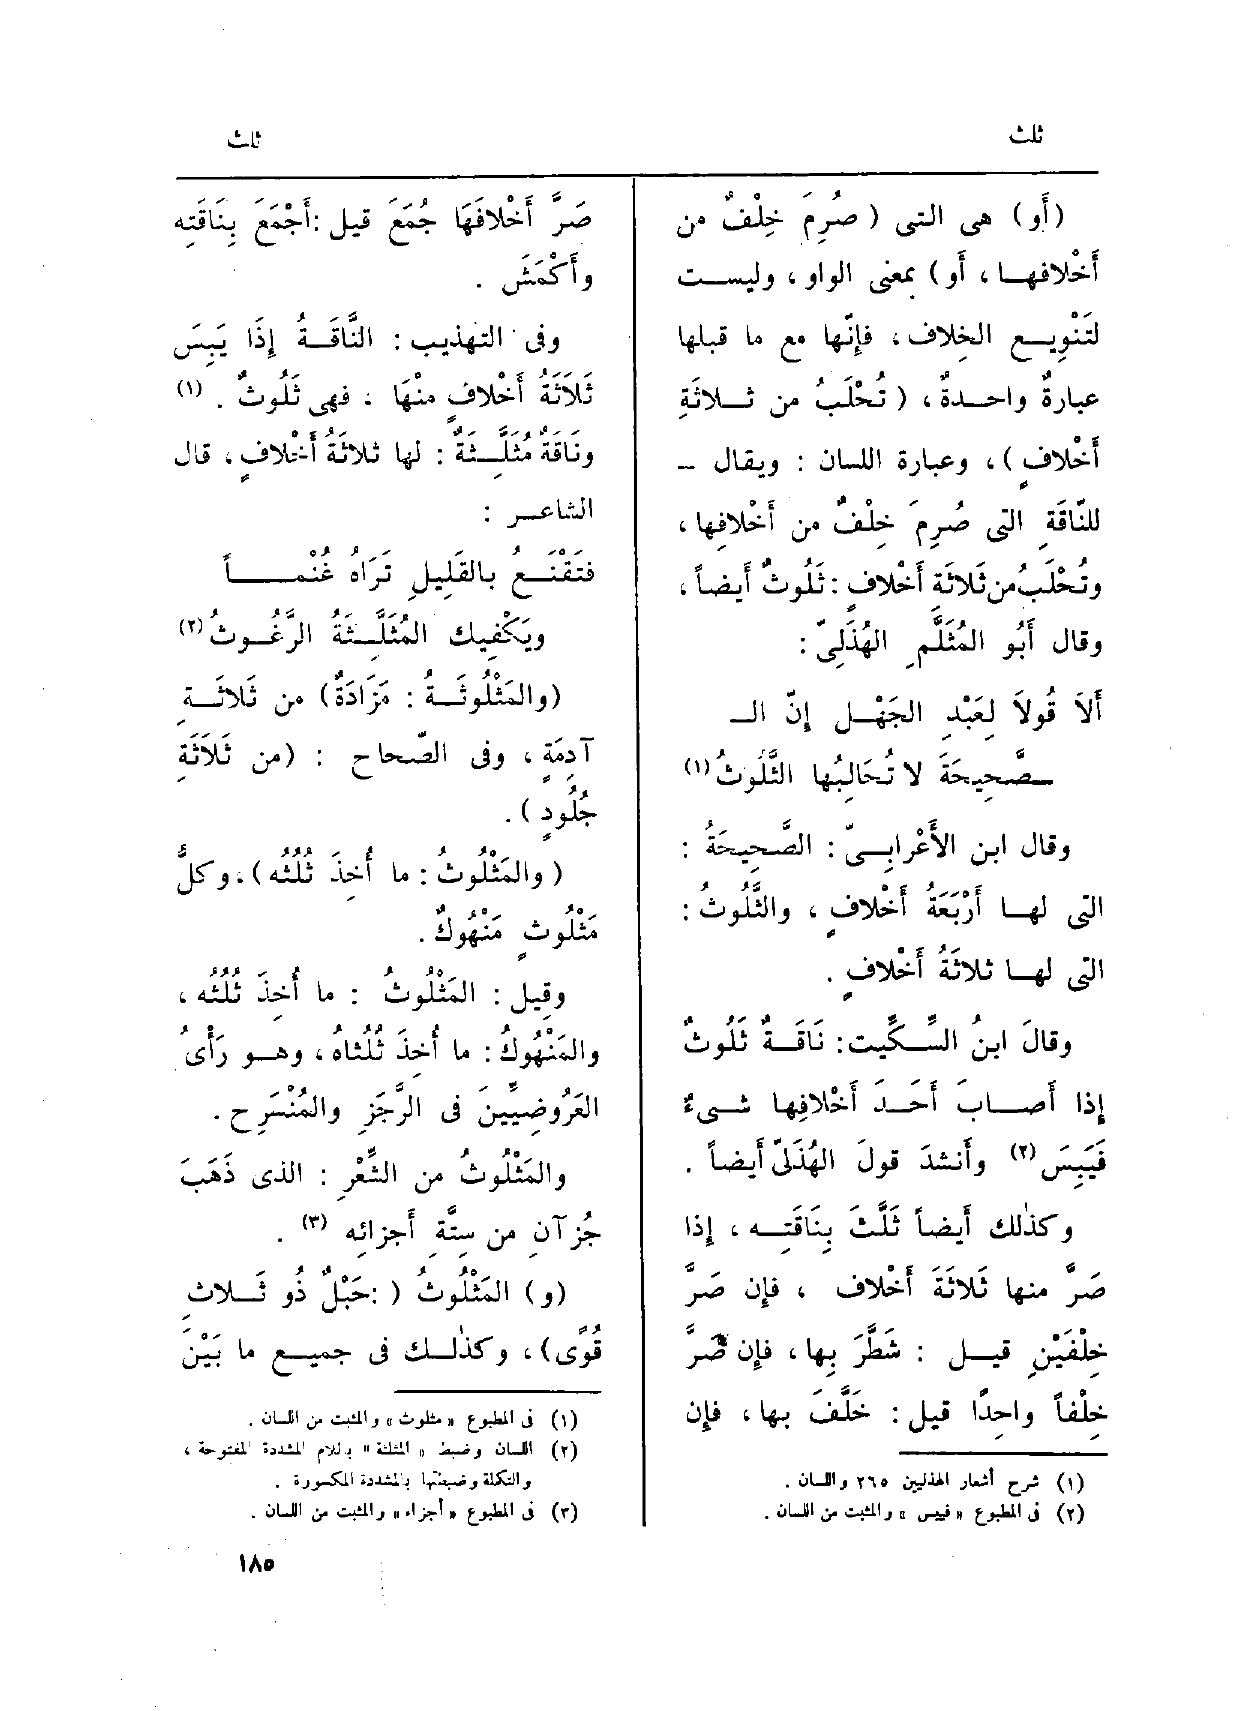 ثلث
ثلث
(أَو) هى التى (صُرِمَ خِلْفٌ من
أَخْلافهـا ، أَو) بمعنى الواو ، وليســت
لتَنْويـع الخِلاف، فإِنّها مع ما قبلها
عبارةٌ واحـدةٌ ، (تُحْلَبُ من ثـلاثَةِ
أَخْلافٍ) ، وعبارة اللسان : ويقال –
للنّاقَةِ التى صُرِمَ خِلْفٌ من أَخْلافِها ،
وتُحْلَبُ من ثَلاثَةِ أَخْلافٍ : ثَلُوثٌ أَيضاً ،
وقال أَبُو المُثَلَّمِ الهُذَلِىّ :
أَلاَ قُولاَ لِعَبْدِ الجَهْـلِ إِنّ الـ
ـصَّحِيحَةَ لا تُحَالِبُها الثَّلُوثُ (١)
وقال ابن الأَعْرابـىّ : الصَّحِيحَةُ :
التى لهـا أَرْبَعَةُ أَخْلافٍ ، والثَّلُوثُ :
التى لهـا ثلاثَةُ أَخْلافٍ .
وقالَ ابنُ السِّـكِّيت : نَاقَـةٌ ثَلُوثٌ
إِذا أَصـابَ أَحَـدَ أَخْلافِها شـىءٌ
فَيَبِسَ (٢) وأَنشدَ قولَ الهُذَلىّ أَيضاً .
وكذٰلك أَيضاً ثَلَّثَ بِنَاقَتِـه ، إِذا
صَرَّ منها ثَلاثَةَ أَخْلاف ، فإِن صَرَّ
خِلْفَيْنِ قيـل : شَطَّرَ بِها ، فإِن صَرَّ
خِلْفاً واحِدًا قيل : خَلَّفَ بها ، فإِن
(١) شرح أشعار الهذليين ٢٦٥ واللسان .
(٢) فى المطبوع « فيبس » والمثبت من اللسان .
صَرَّ أَخْلافَهَا جُمَعَ قيل : أَجْمَعَ بِنَاقَتِه
وأَكْمَشَ .
وفى التهذيب : النَّاقَـةُ إِذَا يَبِسَ
ثَلاَثَةُ أَخْلافٍ منْهَا ، فهى ثَلُوثٌ . (١)
ونَاقَةٌ مُثَلَّـثَةٌ : لها ثلاثَةُ أَخْلافٍ ، قال
الشاعـر :
فتَقْنَـعُ بالقَلِيلِ تَرَاه غُنْمـــاً
ويَكْفِيك المُثَلَّـثَةُ الرَّغُـوثُ (٢)
(والمَثْلُوثَـةُ : مَزَادَةٌ) من ثَلاثَـةِ
آدِمَةٍ ، وفى الصّحاح : (من ثَلاَثَةِ
جُلُودٍ) .
(والمَثْلُوثُ : ما أُخِذَ ثُلُثُه) ، وكلُّ
مَثْلُوثٍ مَنْهُوكٌ .
وقِيل : المَثْلُوثُ : ما أُخِذَ ثُلُثُه ،
والمَنْهُوكُ : ما أُخِذَ ثُلُثاه ، وهـو رَأْىُ
العَرُوضِيِّينَ فى الرَّجَزِ والمُنْسَرِح .
والمَثْلُوثُ من الشِّعْرِ : الذى ذَهَبَ
جُزْآنِ من سِتَّةِ أَجزائِه (٣) .
(و) المَثْلُوثُ (: حَبْلٌ ذو ثَـلاثِ
قُوًى) ، وكذٰلـك فى جميـع ما بَيْنَ
(١) فى المطبوع « مثلوث » والمثبت من اللسان .
(٢) اللسان وضبط « المثلثة » باللام المشددة المفتوحة ،
والتكملة وضبطها بالمشددة المكسورة .
(٣) فى المطبوع « أجزاء » والمثبت من اللسان .
١٨٥